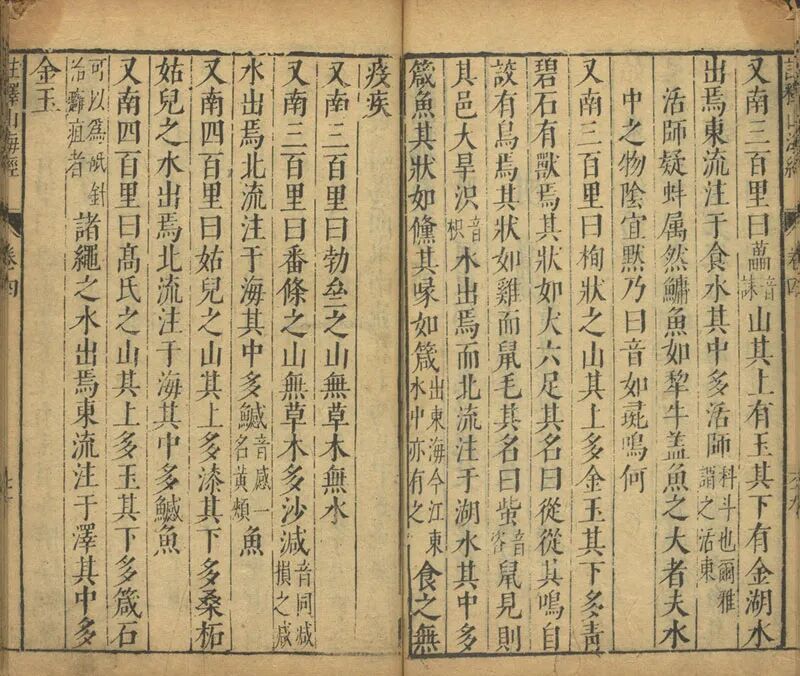 又南三百里曰藟音誄山其上有玉其下有金湖水
出焉東流注于食水其中多活師科斗也爾雅謂之活東
活師疑蚌属然鱅魚如犂牛盖魚之大者夫水
中之物陰宜黙乃曰音如彘鳴何
又南三百里曰栒狀之山其上多金玉其下多青
碧石有獸焉其狀如犬六足其名曰從從其鳴自
詨有鳥焉其狀如雞而鼠毛其名曰蚩音咨鼠見則
其邑大旱沢音枳水出焉而北流注于湖水其中多
箴魚其狀如儵其喙如箴出東海今江東水中亦有之食之無
疫疾
又南三百里曰勃亝之山無草木無水
又南三百里曰番條之山無草木多沙減音同减損之减
水出焉北流注于海其中多鱤音感一名黄頰魚
又南四百里曰姑兒之山其上多漆其下多桑柘
姑兒之水出焉北流注于海其中多鱤魚
又南四百里曰高氏之山其上多玉其下多箴石
可以爲砥針治癰疽者諸繩之水出焉東流注于澤其中多
金玉
註釋山海經
卷四